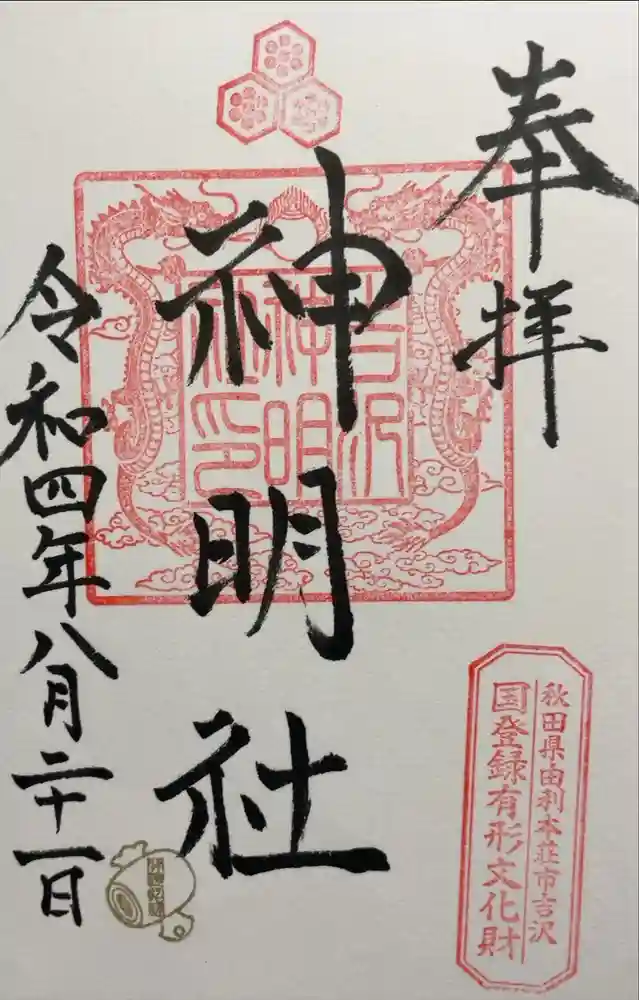 奉拝
神明社
吉沢
神明
社印
令和四年八月二十一日
秋田県由利本荘市吉沢
国登録有形文化財